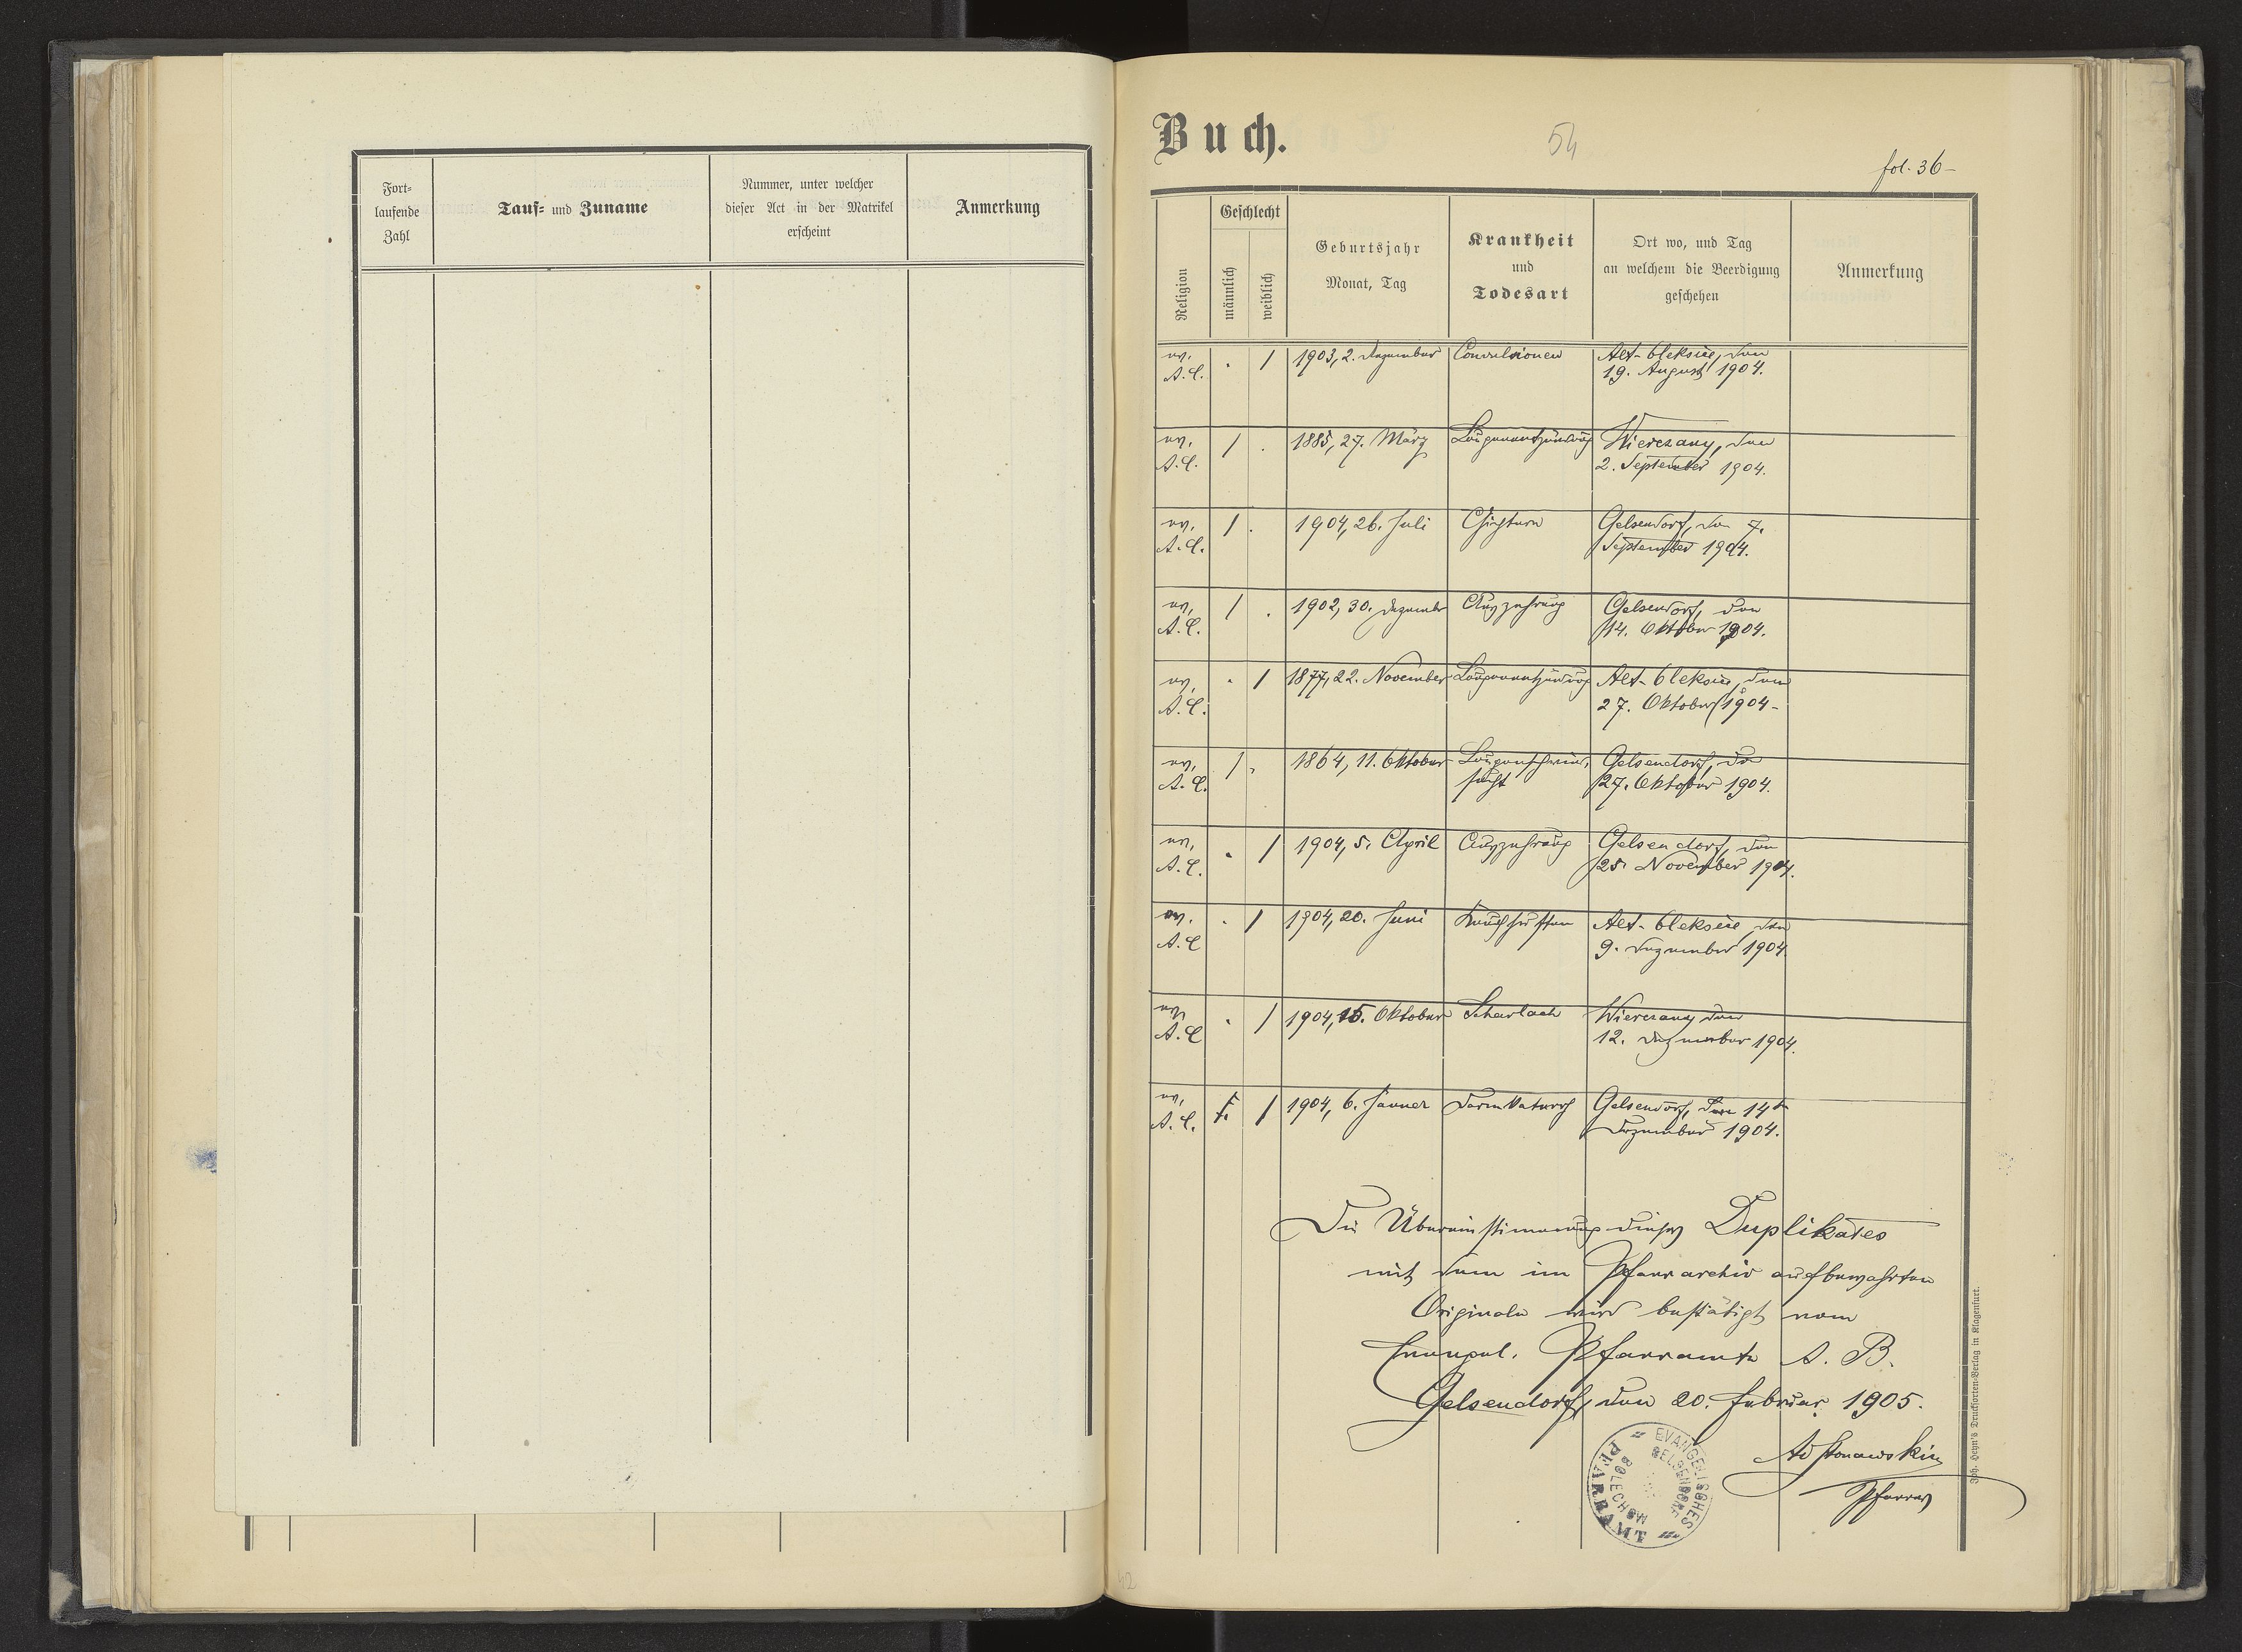 Fort-
laufende
Zahl
Tauf- und Zuname
Nummer, unter welcher
dieser Act in der Matrikel
erscheint
Anmerkung
Buch.
54
fol. 36-
Religion
Geschlecht
männlich
weiblich
Geburtsjahr
Monat, Tag
Krankheit
und
Todesart
Ort wo, und Tag
an welchem die Beerdigung
geschehen
Anmerkung
ev. A.C. . / 1903, 2. Dezember Convulsionen Alt-Oleksice, den
19. August 1904.
ev. A.C. / . 1885, 27. März Lungenentzündung Wierczany, den
2. September 1904.
ev. A.C. / . 1904, 26. Juli Gichtern Gelsendorf, den 7.
September 1904.
ev. A.C. / . 1902, 30. Dezember Auszehrung Gelsendorf, den
14. Oktober 1904.
ev. A.C. . / 1877, 22. November Lungenentzündung Alt-Oleksice, den
27. Oktober 1904-
ev. A.C. / . 1864, 11. Oktober Lungenschwind- Gelsendorf, den
sucht 27. Oktober 1904.
ev. A.C. . / 1904, 5. April Auszehrung Gelsendorf, den
25. November 1904.
ev. A.C . / 1904, 20. Juni Keuchhusten Alt-Oleksice den
9. Dezember 1904
ev. A.C . / 1904, 15. Oktober Scharlach Wierczany den
12. Dezember 1904.
ev. A.C. / 1904, 6. Jänner Darmkatarrh Gelsendorf, den 14t
Dezember 1904.
Die Übereinstimmung dieses Duplikates
mit dem im Pfarrarchiv aufbewahrten
Originale wird bestätigt vom
Evangel. Pfarramte A. B.
Gelsendorf, den 20. Februar 1905.
Pfarrer
EVANGELISCHES
PFARRAMT
GELSENDORF
BOLECHOW
Joh. Heyn's Drucksorten-Verlag in Klagenfurt.
42